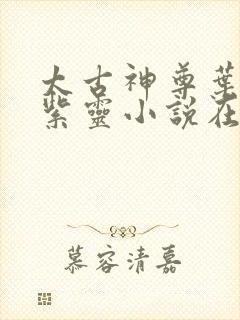 太古神尊葉
紫靈小說在
慕容清嘉